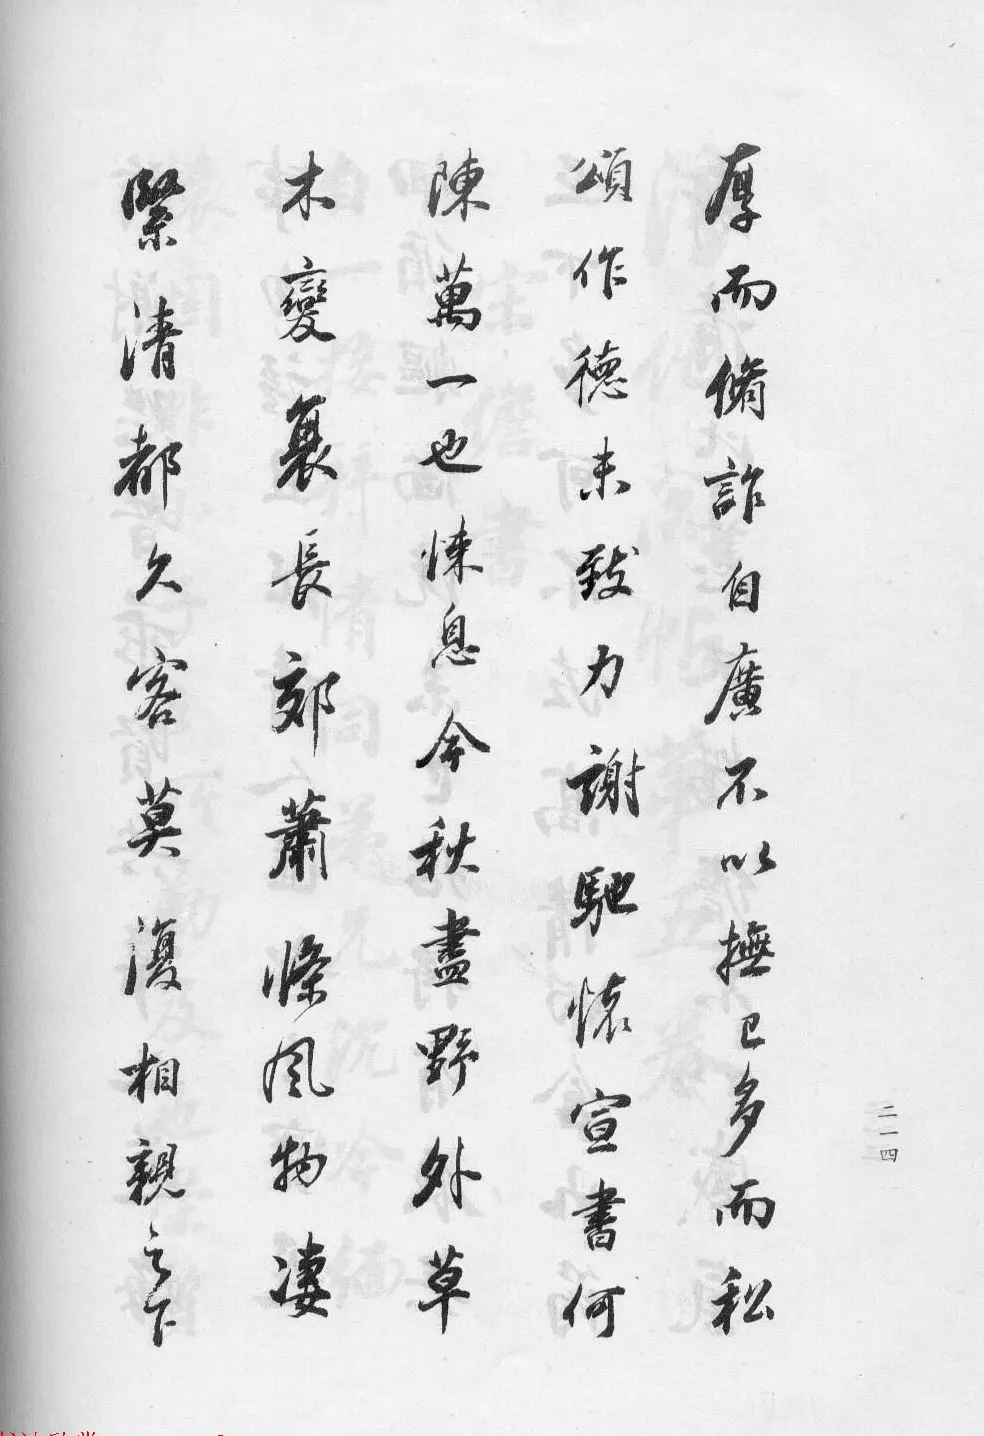 厚而脩詐自廣不以撫已多而私
頌作德未致力謝馳懷宣書何
陳萬一也悚息今秋盡野外草
木變裏長郊蕭條風物淒
緊清都久客莫復相親之下
二一四